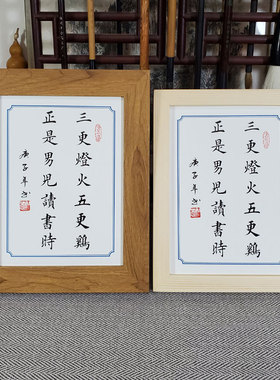 三更燈火五更鷄
正是男兒讀書時
庚子年书
三更燈火五更鷄
正是男兒讀書時
庚子年书